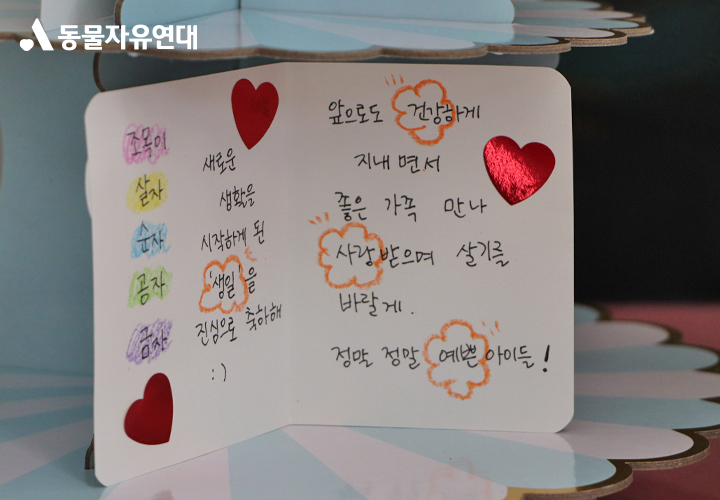 동물자유연대
조목이
살자
순자
공자
금자
새로운
생활을
시작하게 된
'생일'을
진심으로 축하해
:)
앞으로도 건강하게
지내면서
좋은 가족 만나
사랑받으며 살기를
바랄게.
정말 정말 예쁜 아이들!